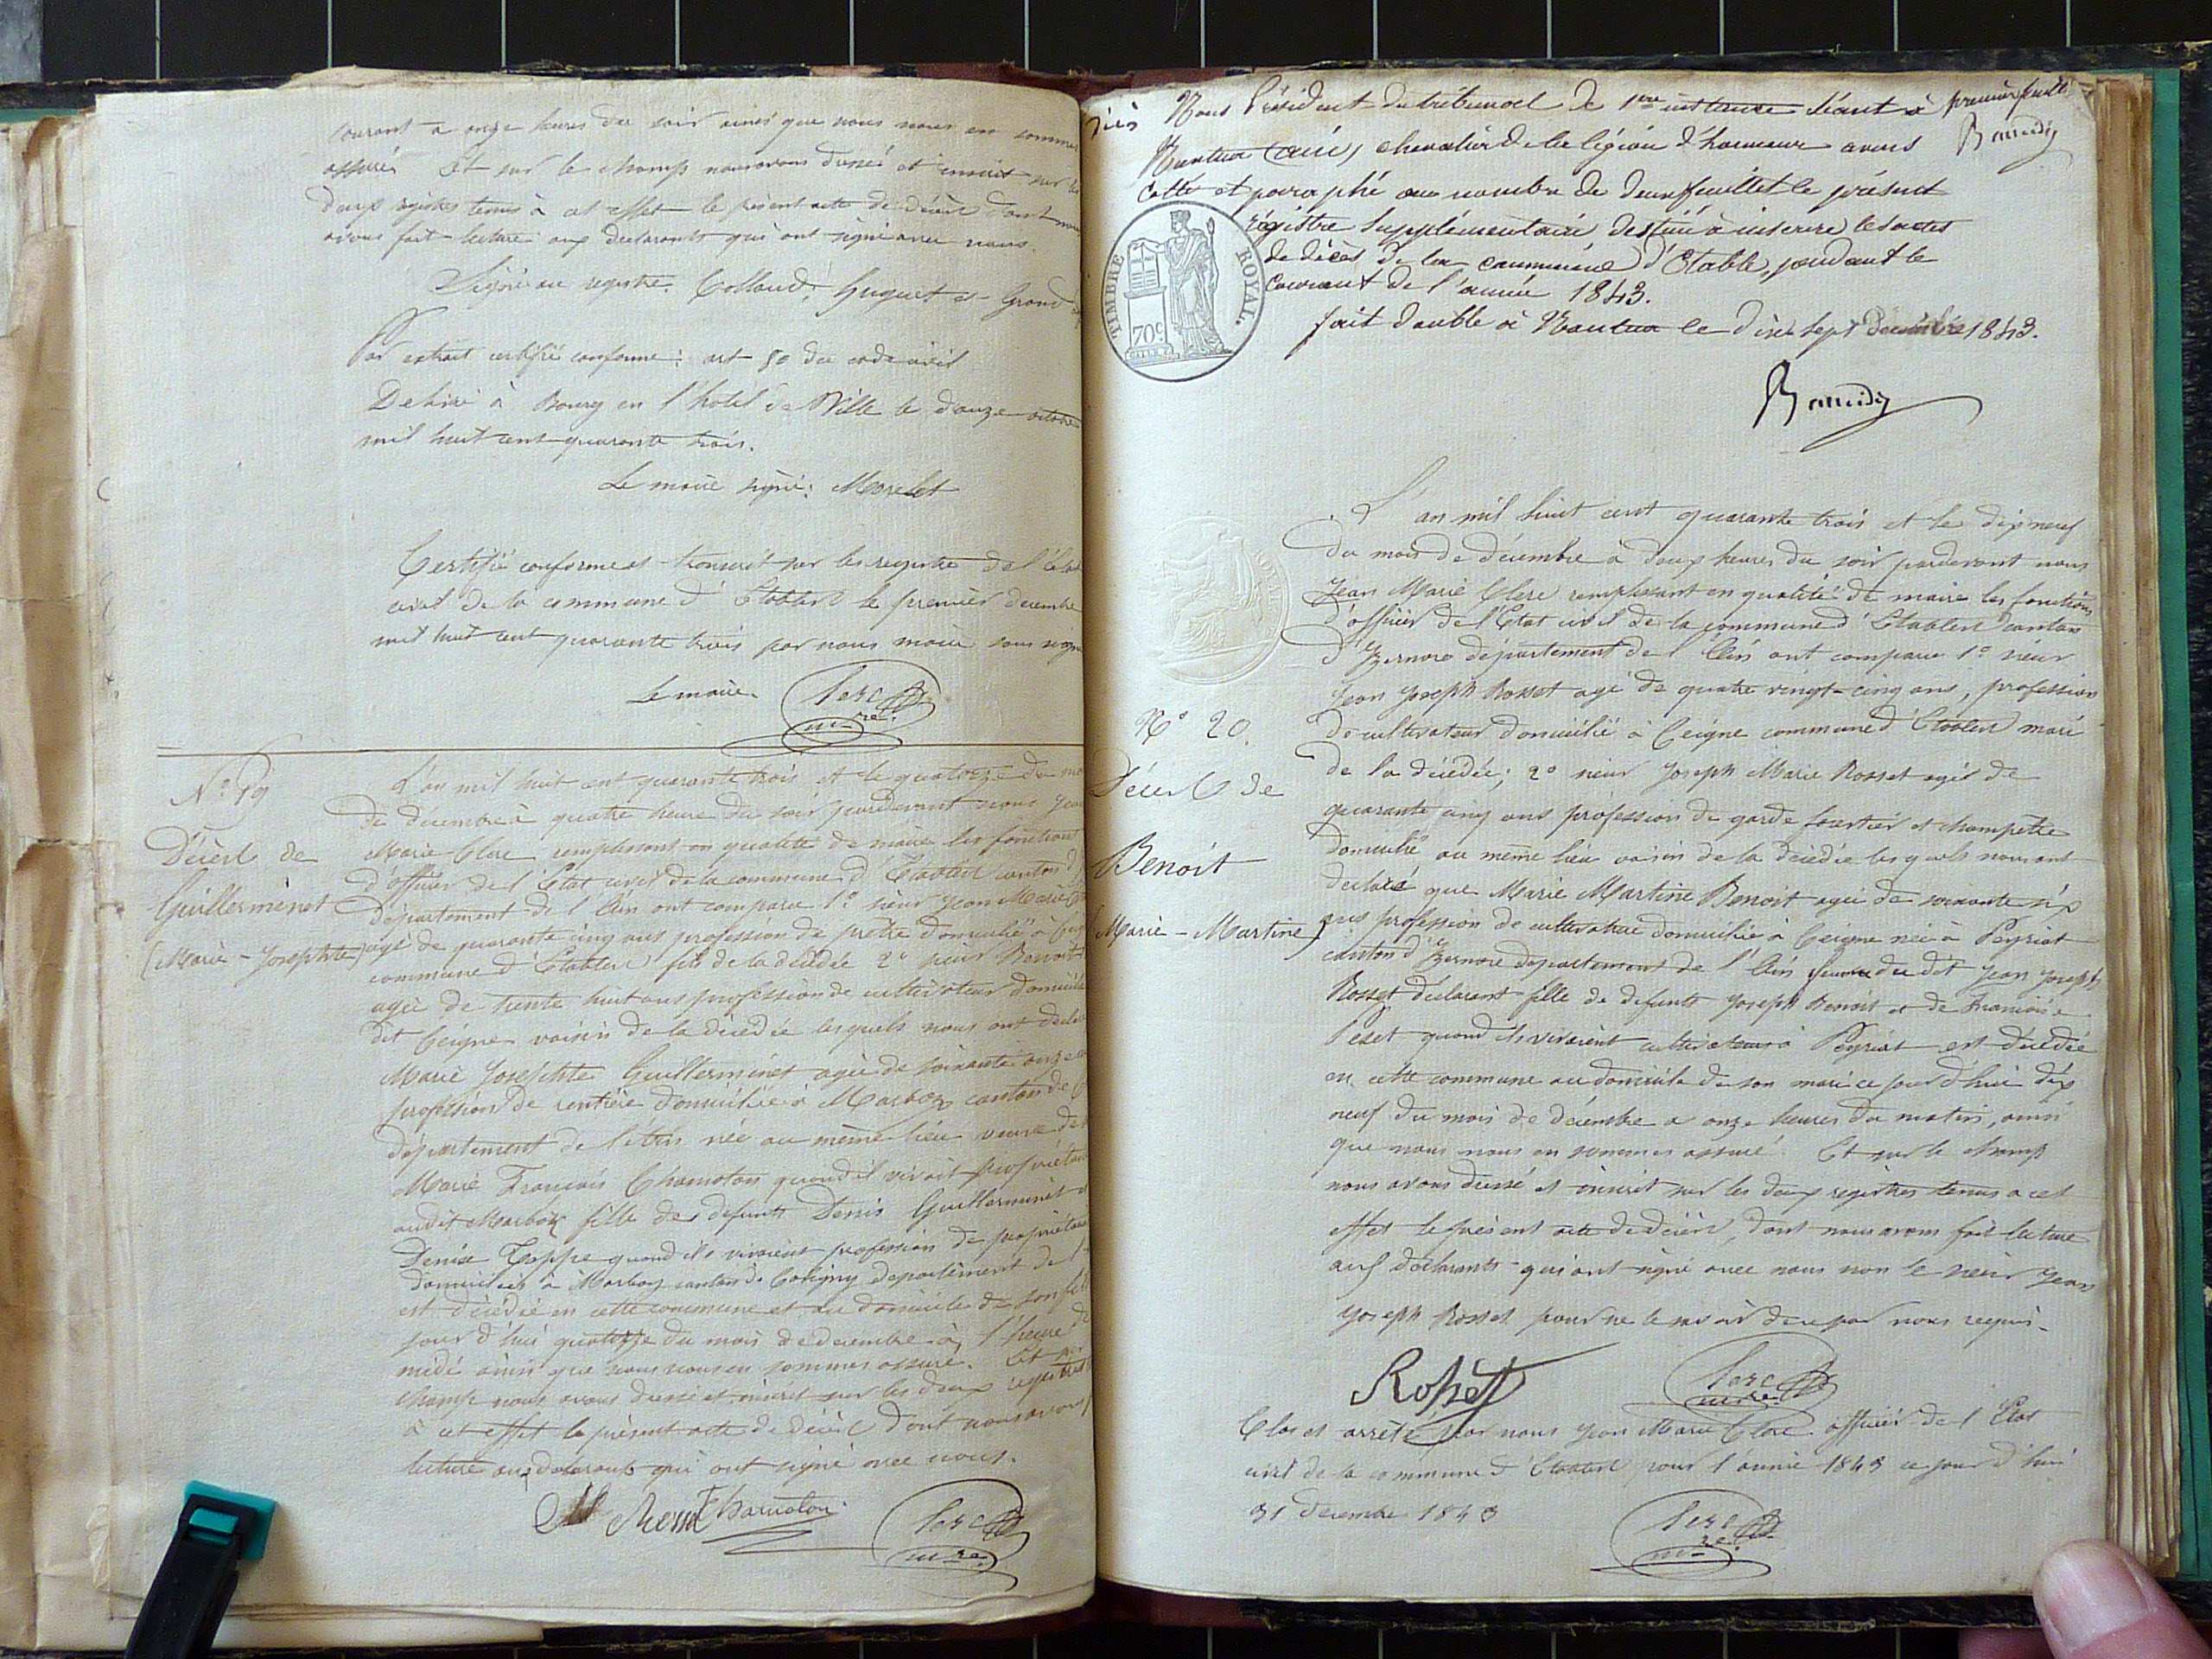 courant a onze heures du soir ainsi que nous nous en sommes
assuré Et sur le champ nous avons dressé et inscrit sur les
deux registres tenus à cet effet le présent acte de décès dont nous
avons fait lecture aux declarants qui ont signé avec nous.
Signé au registre. Collaud, huguet et Grand
Par extrait certifié conforme: art 80 du code civil
Delivré à Bourg en l'hotel de Ville le douze octobre
mil huit cent quarante trois.
Le maire signé: Morelet
Certifié conforme et transcrit sur les registre de l'état
civil de la commune d'Etables le premier decembre
mil huit cent quarante trois par nous maire sous signé
Le maire. Clerc
mre
N° 19
Décès de
Guillerminet
(Marie-Josephte)
L'an mil huit cent quarante trois et le quatorze du mois
de decembre à quatre heure du soir pardevant nous Jean
Marie Clerc remplissant en qualité de maire les fonctions
d'officier de l'Etat civil de la commune d'Etables canton d'
département de l'Ain ont comparu 1° sieur Jean Marie
agé de quarante cinq ans profession de prêtre domicilié à Ceig
commune d'Etables fils de la décédée 2° sieur Benoit
agée de trente huit ans profession de cultivateur domicilié
dit Ceigne voisin de la décédée lesquels nous ont declaré
Marie Josephte Guillerminet agée de soixante onze
profession de rentière domiciliée à Marboz canton de
département de l'Ain née au même lieu veuve de
Marie François Chamoton quand il vivait propriétaire
audit Marboz fille des defunts Denis Guillerminet et
Denise Teppe quand ils vivaient profession de propriétaires
domiciliés à Marboz canton de Coligny departement de l'
est décédée en cette commune et au domicile de son fils
jour d'hui quatorze du mois de decembre à l'heure de
midi ainsi que nous nous en sommes assuré. Et sur
champ nous avons dressé et inscrit sur les deux registres
à cet effet le présent acte de décès dont nous avons
lecture aux declarants qui ont signé avec nous.
Chamoton Clerc
mre
Nous Président du tribunal de 1ere instance séant à
Nantua (ain) chevalier de la légion d'honneur avons
Cotté et paraphé au nombre de deux feuillet le présent
régistre Supplémentaire destiné à inscrire les actes
de décès de la commune d'Etables, pendant le
Courant de l'année 1843.
fait double à Nantua le dix sept Decembre 1843.
première feuille
TIMBRE ROYAL.
70c
N° 20.
Décès de
Benoit
(Marie-Martine)
L'an mil huit cent quarante trois et le dix neuf
du mois de décembre à deux heures du soir pardevant nous
Jean Marie Clerc remplissant en qualité de maire les fonctions
d'officier de l'Etat civil de la commune d'Etables canton
d'Izernore département de l'Ain ont comparu 1° sieur
Jean Joseph Rosset agé de quatre vingt-cinq ans, profession
de cultivateur domicilié à Ceigne commune d'Etables mari
de la décédée; 2° sieur Joseph Marie Rosset agé de
quarante cinq ans profession de garde forestier et champetre
domicilié au même lieu voisin de la décédée lesquels nous ont
declaré que Marie Martine Benoit agée de soixante six
ans profession de cultivatrice domiciliée à Ceigne née à Peyriat
canton d'Izernore département de l'Ain femme du dit Jean Joseph
Rosset déclarant fille de defunts Joseph Benoit et de Françoise
Peset quand ils vivaient cultivateurs à Peyriat est décédée
en cette commune au domicile de son mari ce jour d'hui dix
neuf du mois de décembre a onze heures du matin, ainsi
que nous nous en sommes assuré. Et sur le champ
nous avons dressé et inscrit sur les deux registres tenus a cet
effet le présent acte de décès, dont nous avons fait lecture
aux déclarants qui ont signé avec nous non le sieur Jean
Joseph Rosset pour ne le savoir de ce par nous requis.
Rosset Clerc
mre
Clos et arrêté par nous Jean Marie Clerc officier de l'Etat
civil de la commune d'Etables pour l'année 1843 ce jour d'hui
31 decembre 1843
Clerc
mre